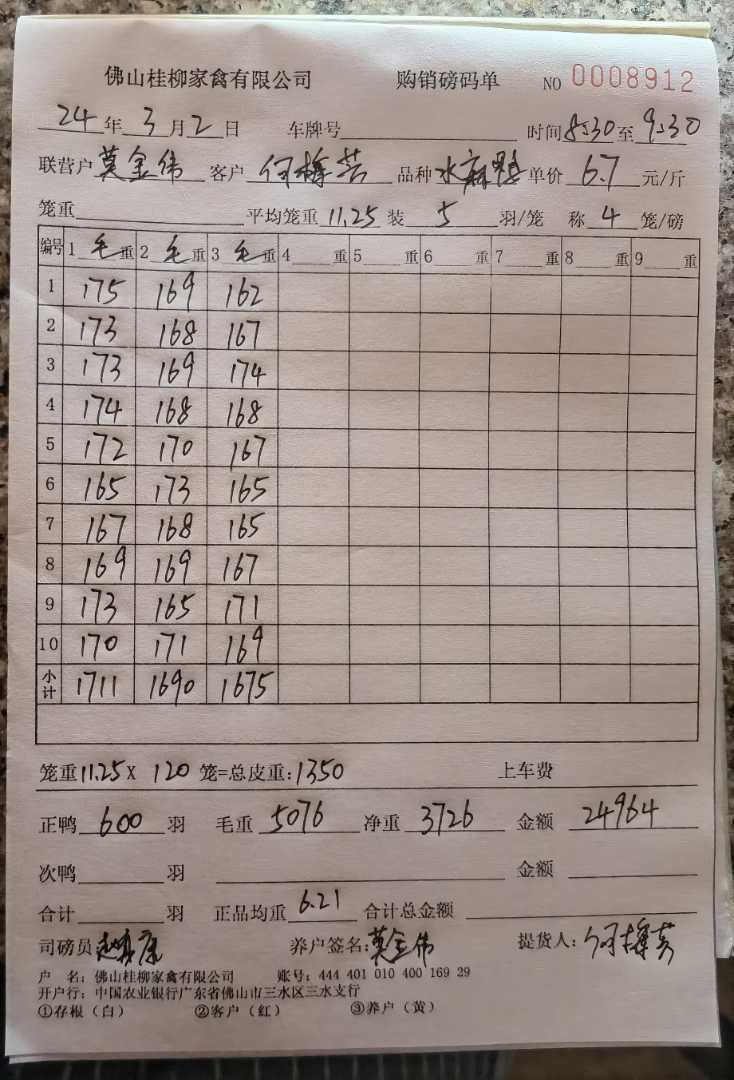 佛山桂柳家禽有限公司 购销磅码单 NO 0008912
24年3月2日 车牌号 时间8:30至9:30
联营户 莫金伟 客户 何梅芸 品种 水麻鸭 单价 6.7 元/斤
笼重 平均笼重 11.25 装 5 羽/笼 称 4 笼/磅
编号 1 毛 重 2 毛 重 3 毛 重 4 重 5 重 6 重 7 重 8 重 9 重
1 175 169 162
2 173 168 167
3 173 169 174
4 174 168 168
5 172 170 167
6 165 173 165
7 167 168 165
8 169 169 167
9 173 165 171
10 170 171 169
小计 1711 1690 1675
笼重 11.25 X 120 笼=总皮重:1350 上车费
正鸭 600 羽 毛重 5076 净重 3726 金额 24964
次鸭 羽 金额
合计 羽 正品均重 6.21 合计总金额
司磅员 养户签名:莫金伟 提货人:何梅芸
户 名:佛山桂柳家禽有限公司 账号:444 401 010 400 169 29
开户行:中国农业银行广东省佛山市三水区三水支行
①存根(白) ②客户(红) ③养户(黄)